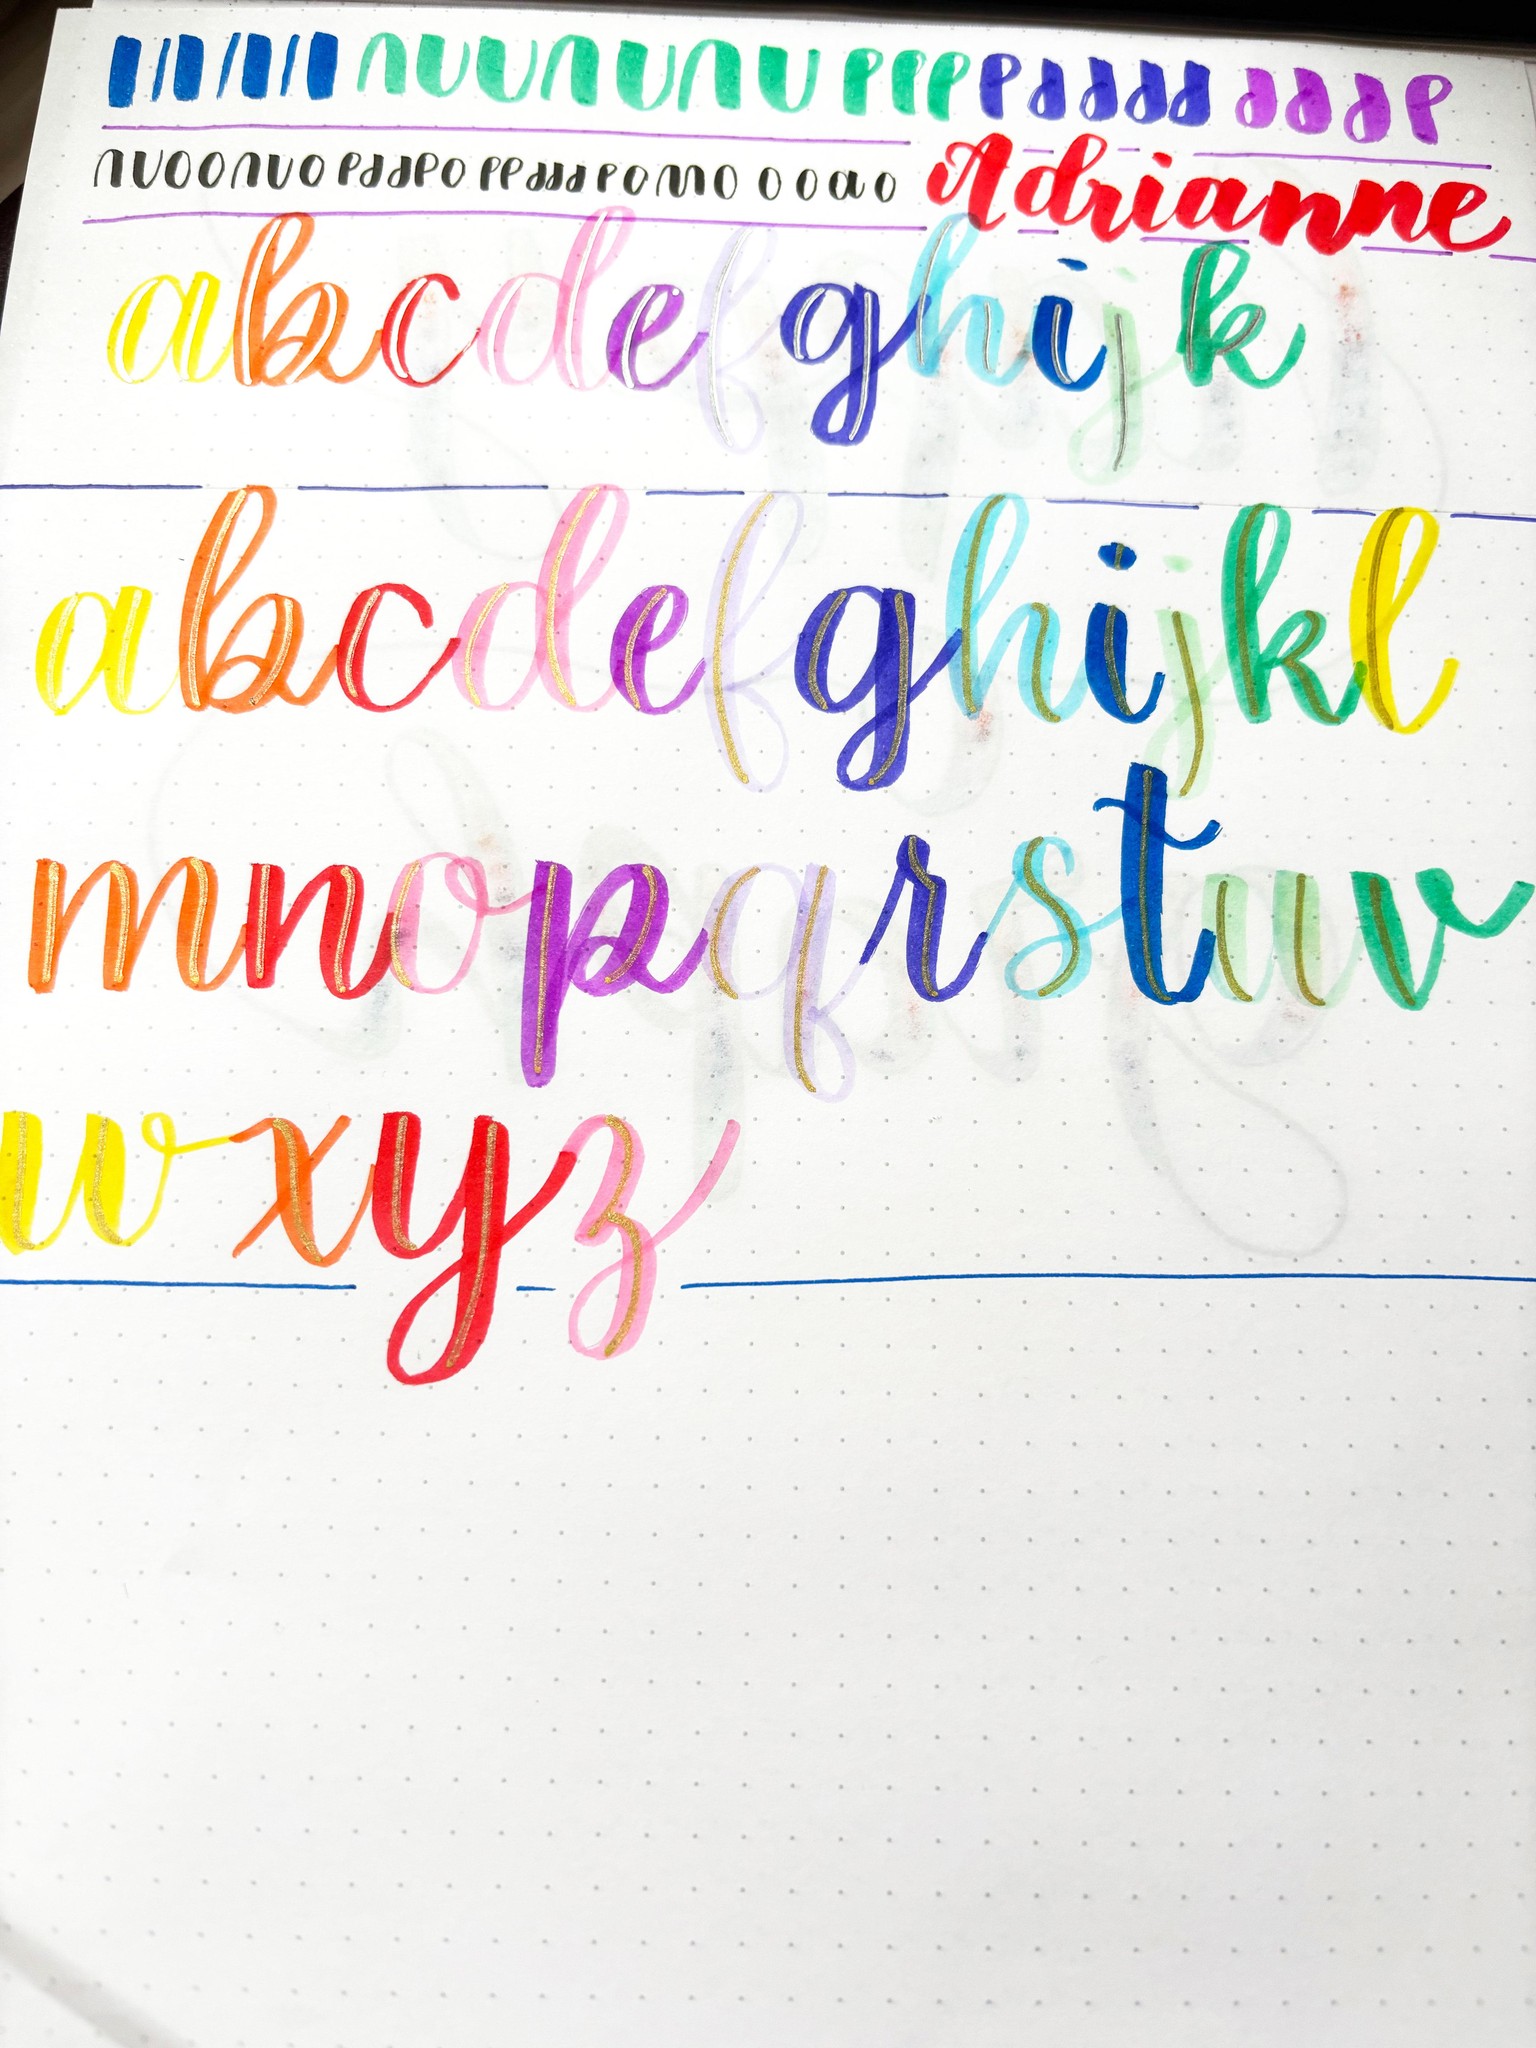 Adrianne
abcdefghijk
abcdefghijkl
mnopqrstuv
wxyz